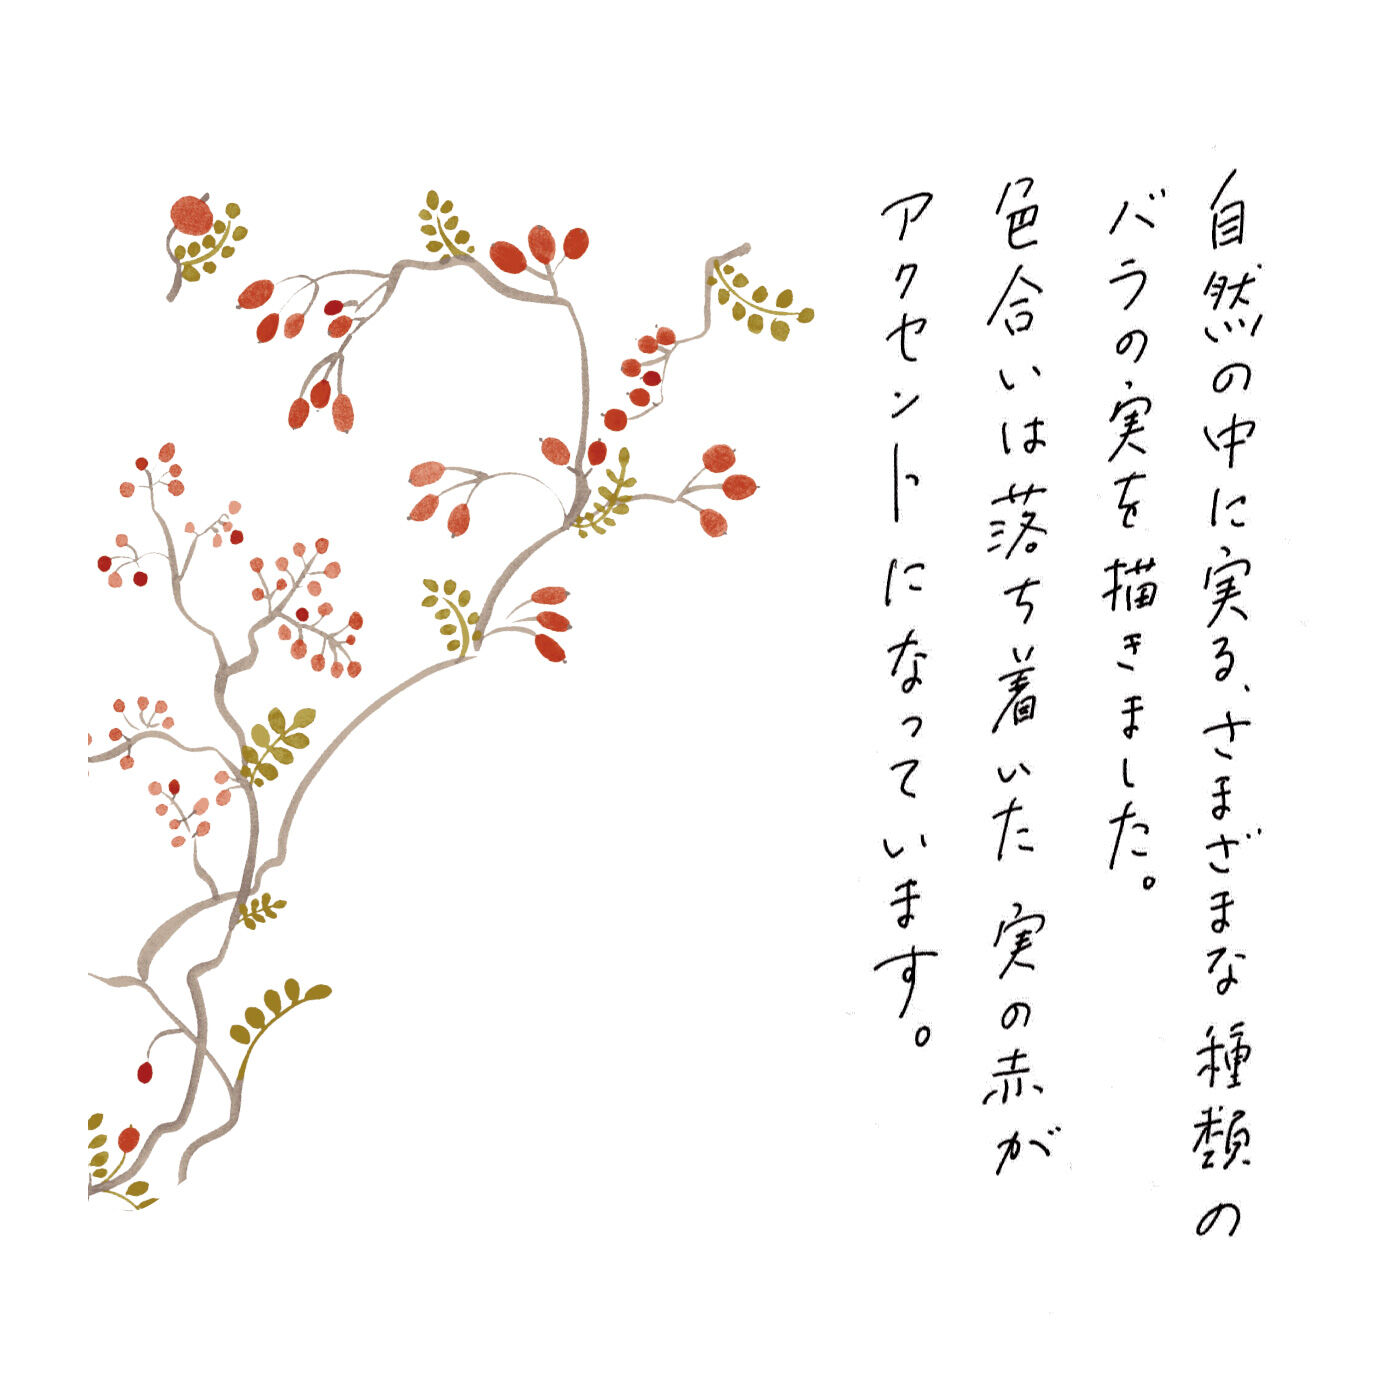 自然の中に実る、さまざまな種類の
バラの実を描きました。
色合いは落ち着いた実の赤が
アクセントになっています。